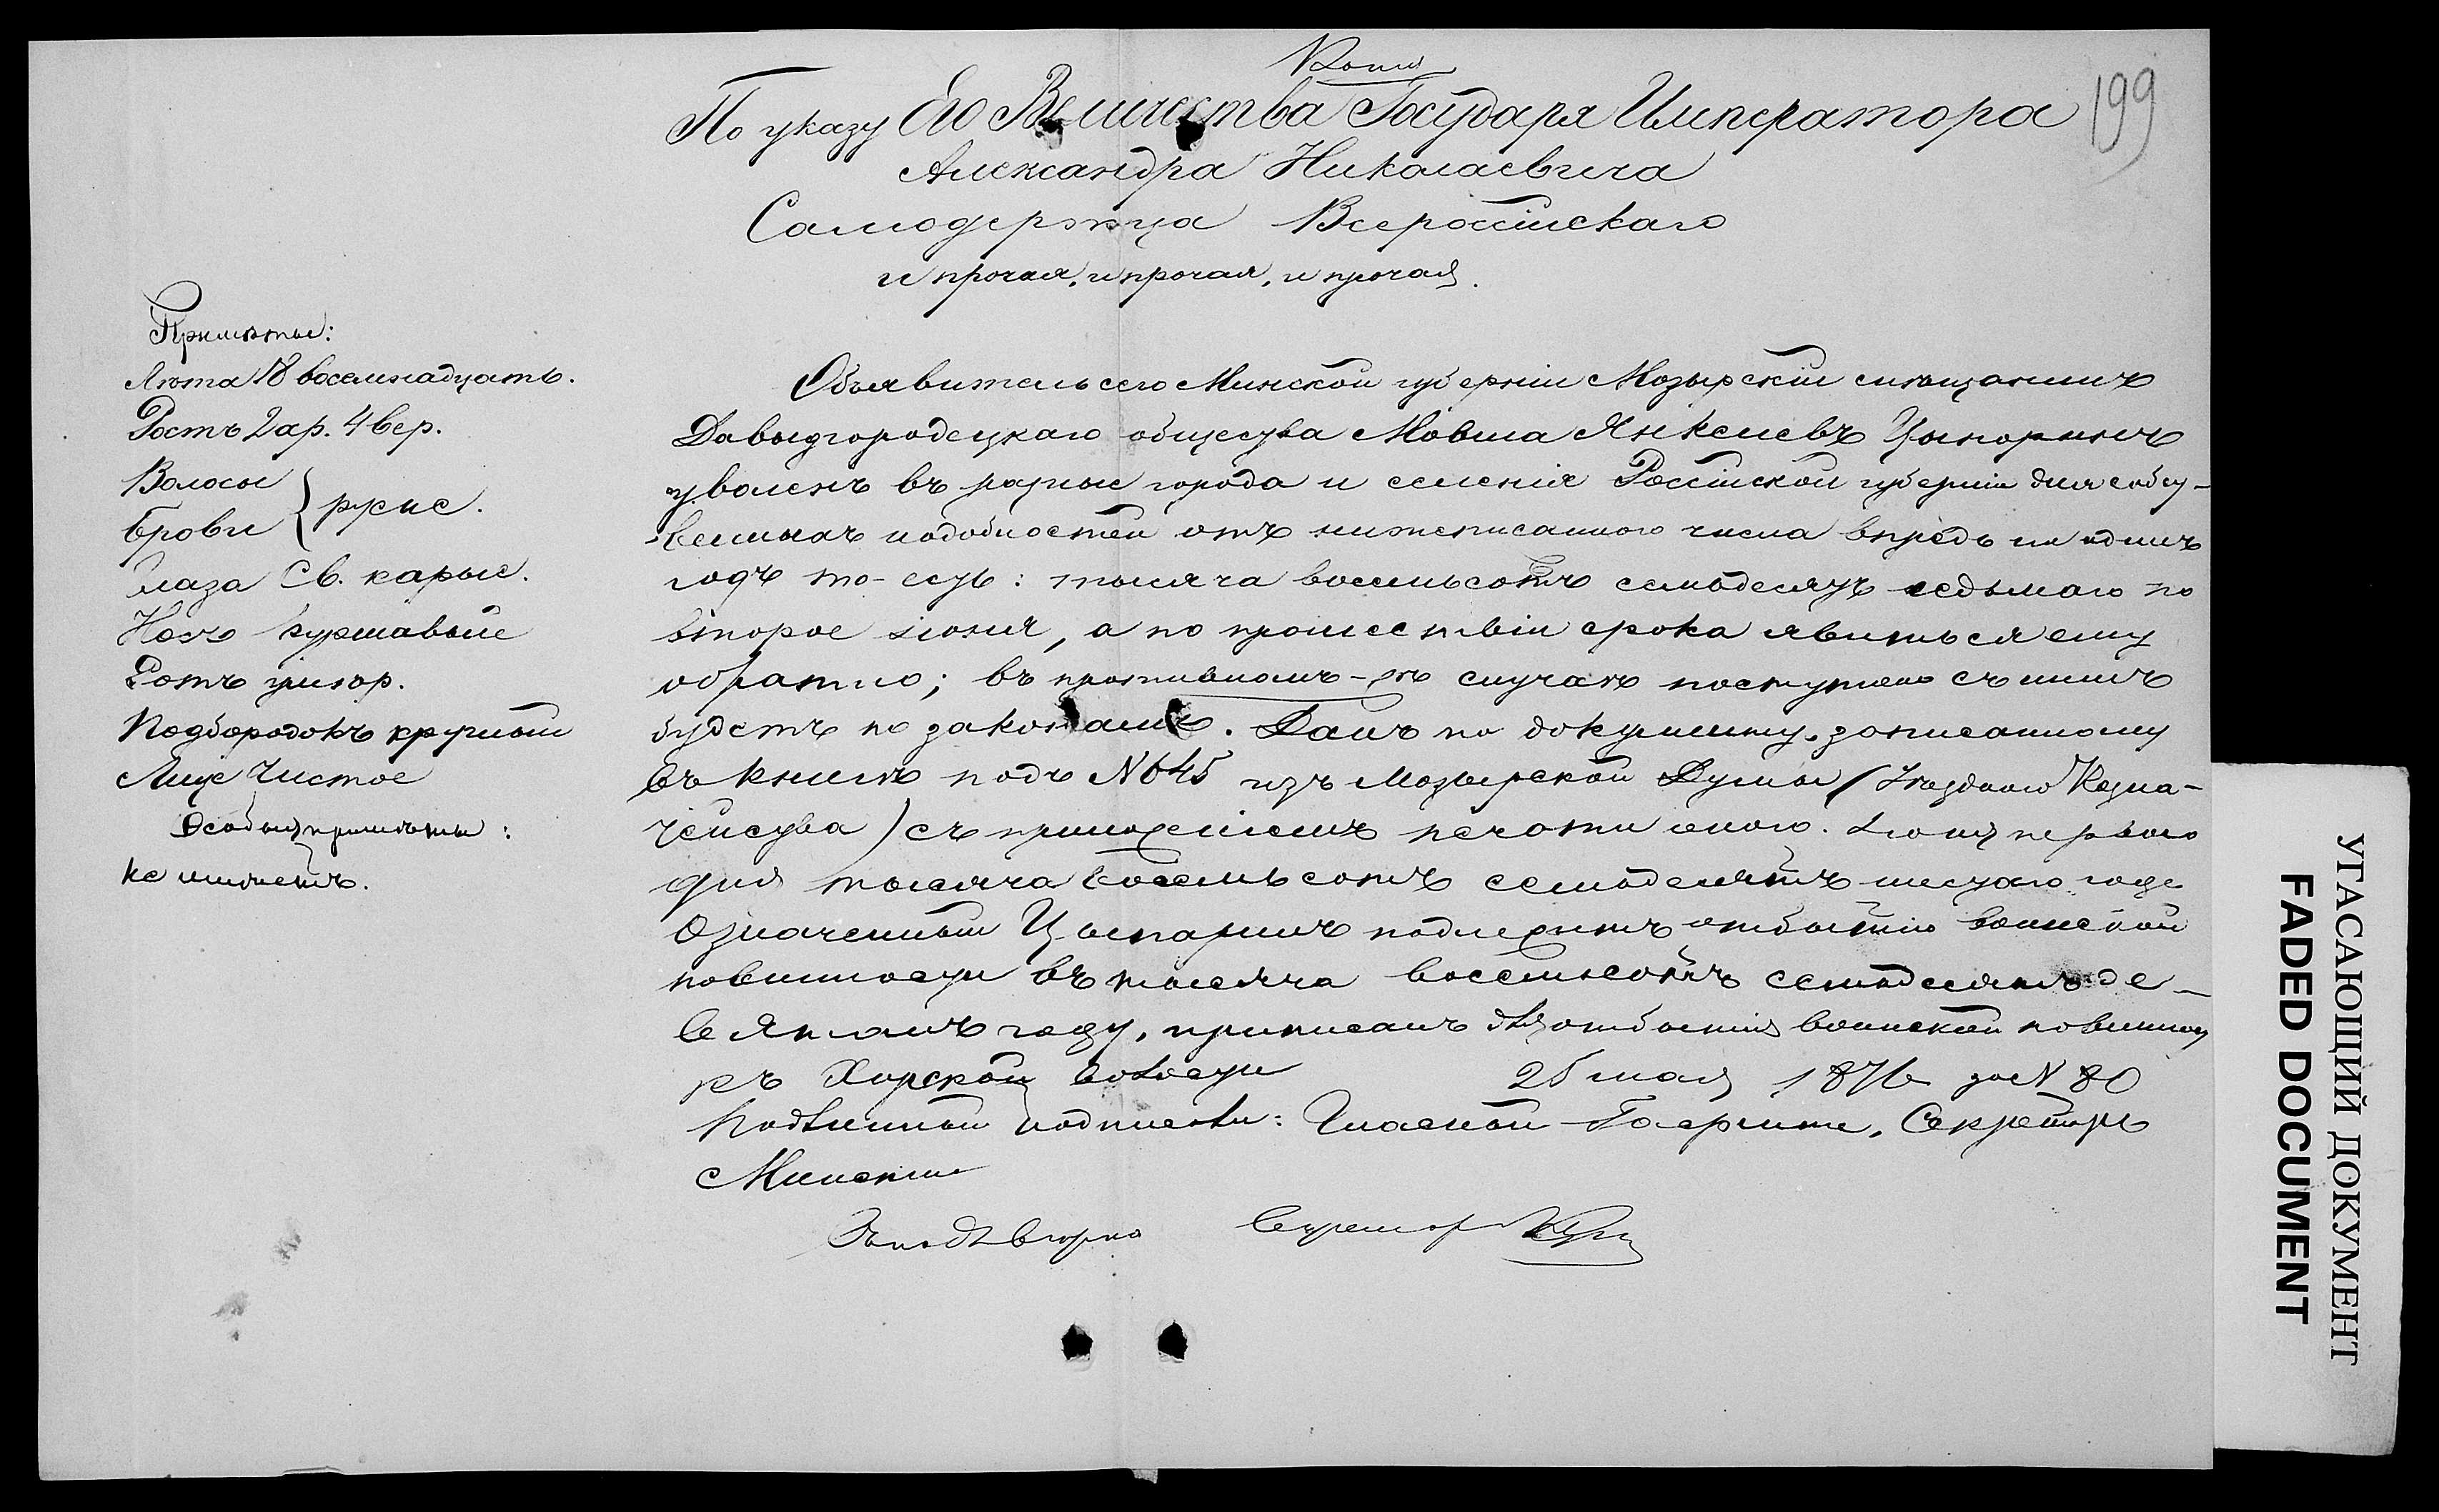 Копія
199
По указу Его Величества Государя Императора
Александра Николаевича
Самодержца Всероссійскаго
и прочая, и прочая, и прочая.
Примѣты:
Лѣта 18 восемнадцать.
Ростъ 2 ар. 4 вер.
Волосы
брови } русые.
глаза Св. карые.
Носъ
Ротъ
Подбородокъ круглый
Лице Чистое
Особыя примѣты:
не имѣетъ.
Объявитель сего Минской губерніи Мозырскій мѣщанинъ
Давыдгородецкаго общества Мовша Янкелевъ Цыпоринъ
уволенъ въ разные города и селенія Россійской губерніи для собст-
венныхъ надобностей отъ нижеписаннаго числа впредь на одинъ
годъ то-есть: тысяча восемьсотъ семьдесятъ седьмаго по
второе Іюня, а по прошествіи срока явиться ему
обратно; въ противномъ-же случаѣ поступлено съ нимъ
будетъ по законамъ. Данъ по документу, записанному
въ книгѣ подъ № 645 изъ Мозырской Думы (Уѣзднаго Казна-
чейства) съ приложеніемъ печати оной. Іюня перваго
дня тысяча восемьсотъ семьдесятъ шестаго года
Означенный Цыпаринъ подлежитъ отбытію воинской
повинности въ тысяча восемьсотъ семьдесятъ де-
вятомъ году, приписанъ для отбытія воинской повиннос
къ Хорской волости 25 мая 1876 за № 80
Подлинный подписали: Гласный Секретарь
Минскій